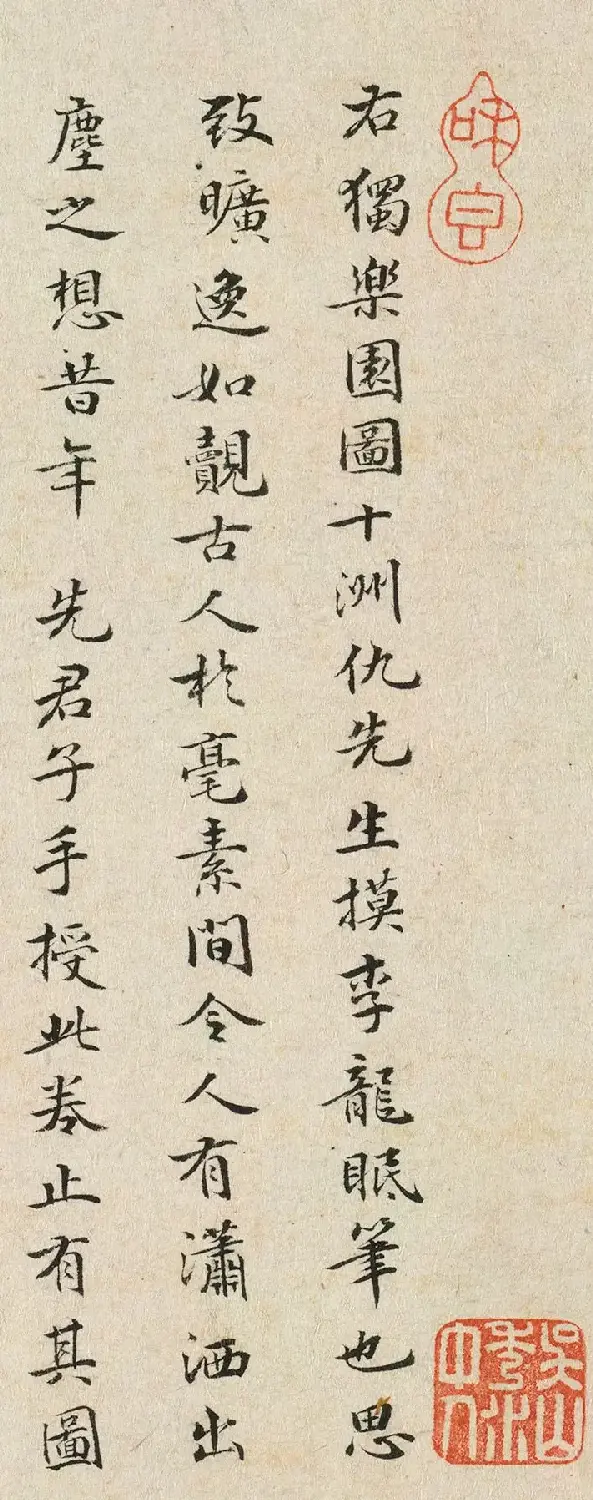 吳山
秀水
中人
右獨樂園圖十洲仇先生摸李龍眠筆也思
致曠逸如覿古人於毫素間令人有瀟洒出
塵之想昔年 先君子手授此卷止有其圖